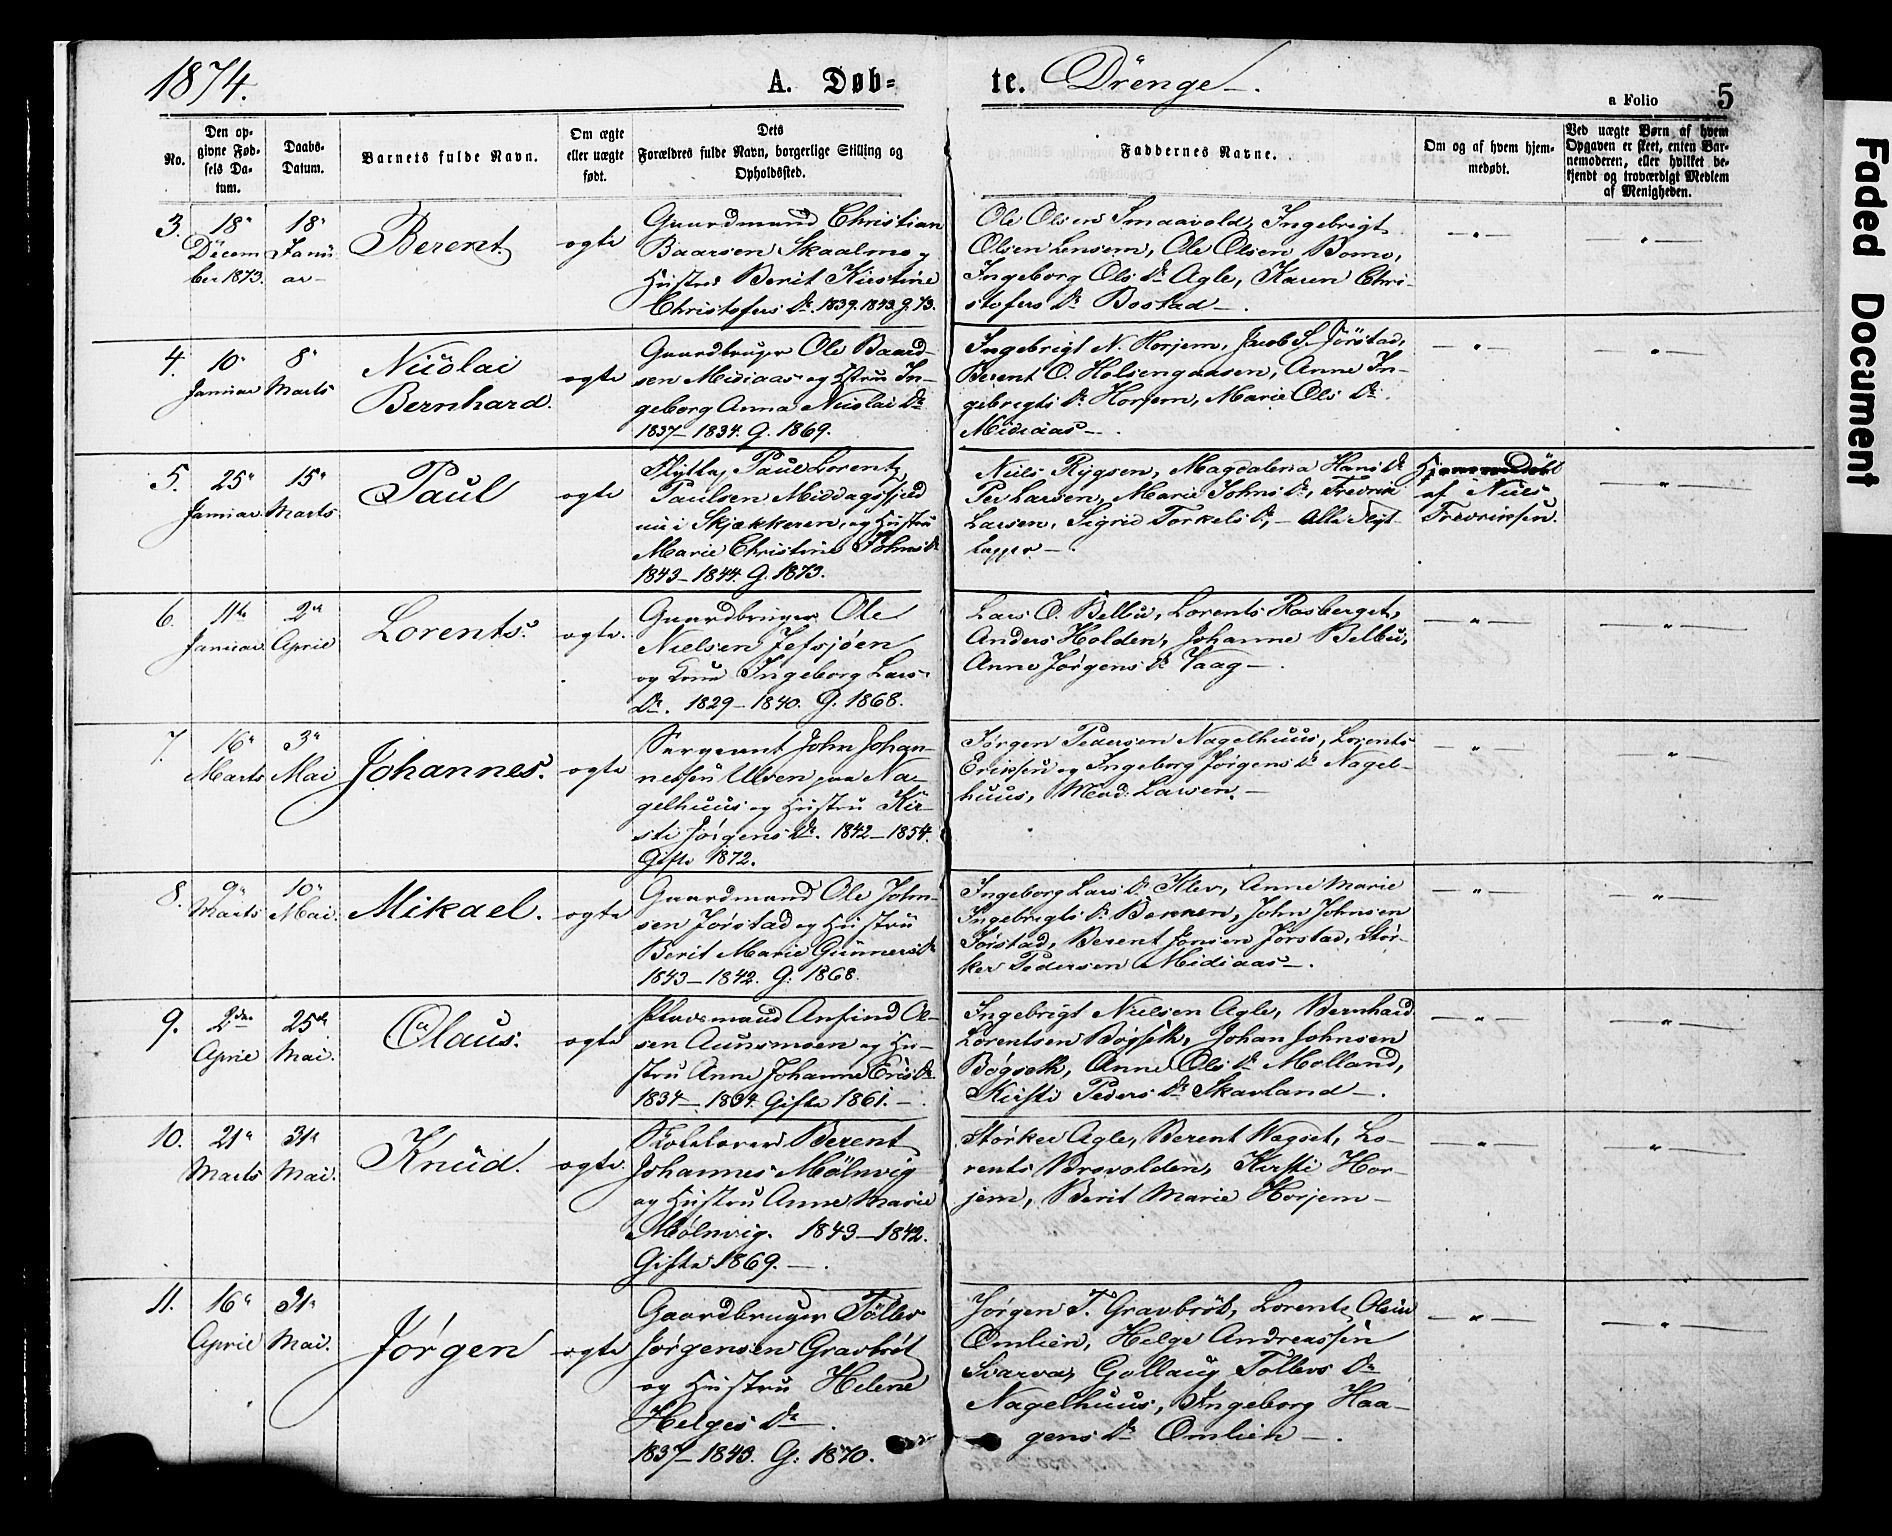 1874.
A. Døb-
te. Drenge
a Folio
5
No.
Den op-
givne Fød-
sels Da-
tum.
Daabs-
Datum.
Barnets fulde Navn.
Om ægte
eller uægte
født.
Dets
Forældres fulde Navn, borgerlige Stilling og
Opholdssted.
Faddernes Navne.
Om og af hvem hjem-
medøbt.
Ved uægte Børn af hvem
Opgaven er skeet, enten Bar-
nemoderen, eller hvilket be-
kjendt og troværdigt Medlem
af Menigheden.
3.
18"
Decem
ber 1873.
18"
Janu
ar
Berent.
ægte
Gaardmand Christian
Baarsen Skaalmo og
Hustru Berit Kirstine
Christofers Dr. 1839. 1843. g. 73.
Ole Olsen Smaavold, Ingebrigt
Olsen Lensem, Ole Olsen Bomo,
Ingeborg Ols Dr Agle, Karen Chri-
stofers Dr Bostad
4.
10"
Januar
8"
Marts
Nicolai
Bernhard.
ægte
Gaardbruger Ole Baard-
sen Midiaas og Hstru In-
geborg Anna Nicolai Dr
1837 - 1834. G. 1869.
Ingebrigt N. Horjem, Jacob S. Jörstad,
Berent O. Holsengaasen, Anne In-
gebrigts Dr Horjem, Marie Ols Dr
Midiaas
5.
25"
Januar
15"
Marts
Paul
ægte
Flytlap Paul Lorentz
Paulsen Middagsfjeld
nu i Skjækkeren, og Hustru
Marie Christine Johns Dr
1843 - 1844. G. 1873.
Niels Magdalena Hans Dr
Per Larsen, Marie Johns Dr, Fredrik
Larsen, Sigrid Torkels Dr, - Alle Flyt
lapper
Hjemmedöbt
af Niels
Fredriksen.
6.
11te
Januar
2den
April
Lorents.
ægte.
Gaardbruger Ole
Nielsen Jefsjøen
og Kone Ingeborg Lars
Dr. 1829 - 1840. G. 1868.
Lars O. Belbu, Lorents Rosberget,
Anders Holden, Johanne Belbu,
Anne Jørgens Dr Vaag
7.
16"
Marts
3"
Mai
Johannes.
ægte
Sergeant John Johan-
nesen Ulven paa Na-
gelhuus og Hustru Kir-
sti Jørgens Dr. 1842 - 1854.
Gifte 1872.
Jørgen Pedersen Nagelhuus, Lorents
Eriksen og Ingeborg Jørgens Dr Nagel-
huus, Mad: Larsen.
8.
9"
Marts
10"
Mai.
Mikael.
ægte
Gaardmand Ole John-
sen Jørstad og Hustru
Berit Marie Gunners Dr
1843 - 1842. G: 1868.
Ingeborg Lars Dr Klev, Anne Marie
Ingebrigts Dr John Johnsen
Jørstad, Berent Jonsen Jørstad, Stør-
ker Pedersen Midiaas
9.
2den
April
25de
Mai.
Olaus.
ægte
Pladsmand Anfind Ol-
sen Aunsmoen og Hu-
stru Anne Johanne Dr
1834 - 1834. Gifte 1861.
Ingebrigt Nielsen Agle, Bernhard
Lorentsen Bøgseth, Johan Johnsen
Bøgseth, Anne Ols Dr Molland,
Kirsti Peders Dr Skavland
10.
21"
Marts
31"
Mai.
Knud.
ægte.
Skolelærer Berent
Johannes Mölnvig
og Hustru Anne Marie
Mølnvig. 1843 - 1842.
Gifte 1869.
Størker Agle, Berent Wagset, Lo-
rents Kirsti Hor-
jem, Berit Marie Horjem
11.
16"
April
31"
Mai.
Jørgen
ægte
Gaardbruger Töllev
Jørgensen Gravbröt
og Hustru Helene
Helges Dr
1837 - 1843. G: 1870.
Jørgen T. Gravbröt, Lorentz Olsen
Omlien, Helge Andreassen
Svarva, Gollaug Tollevs Dr
Nagelhuus, Ingeborg Haa-
gens Dr Omlien
Faded Document